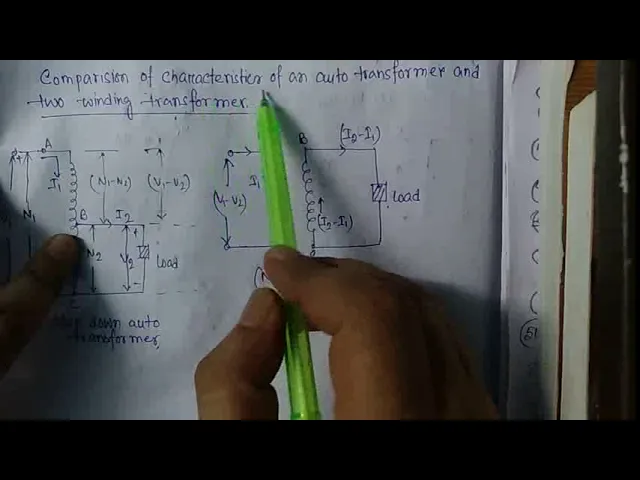 Comparision of characteristics of an auto transformer and
two winding transformer.
A
I1
(N1-N2)
(V1-V2)
N1
B
I2
N2
V2
+
-
Load
down auto
transformer,
(V1-V2)
I1
B
(I2-I1)
(I2-I1)
Load